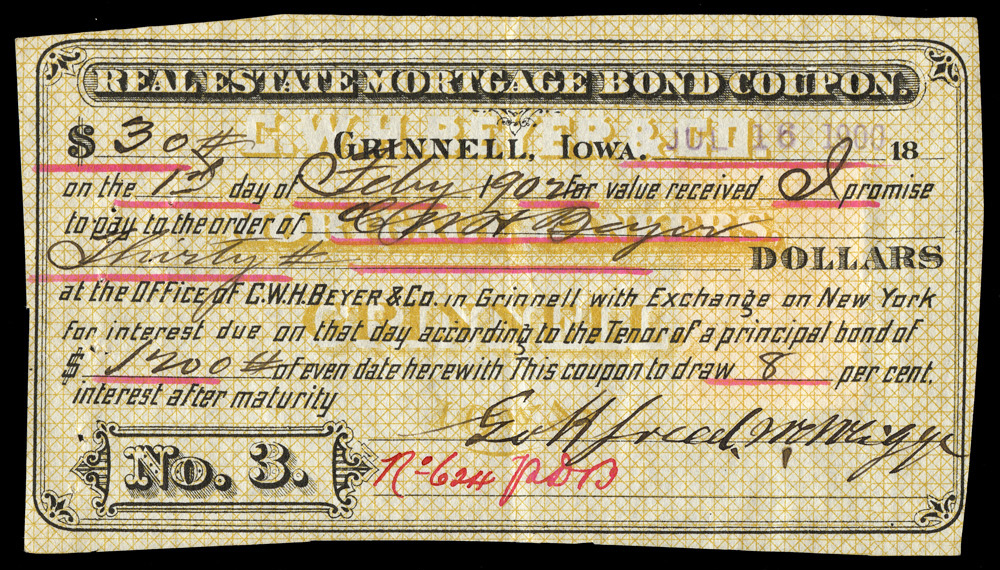 REAL ESTATE MORTGAGE BOND COUPON.
C.W.H. BEYER & CO.
$ 30 # GRINNELL, IOWA. JUL 16 1900 18
on the 1st day of Feby 1902 for value received I promise
to pay to the order of C W H Beyer
BANKERS.
Thirty # DOLLARS
at the OFFICE of C.W.H. BEYER & CO. in Grinnell with Exchange on New York
GRINNELL
for interest due on that day according to the Tenor of a principal bond of
$ 1200 # of even date herewith This coupon to draw 8 per cent.
interest after maturity
IOWA
No. 3.